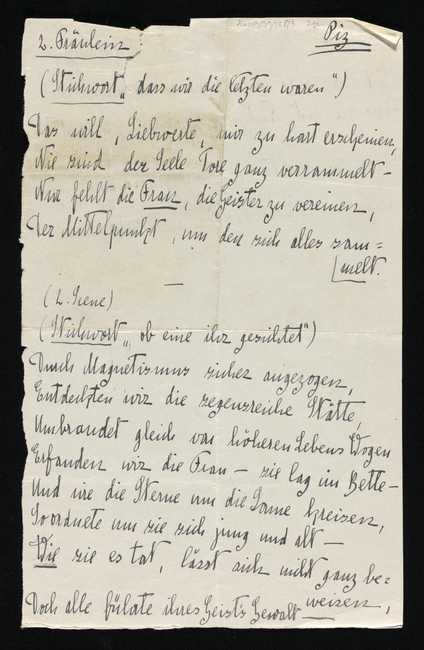 2. Fräulein
Piz
(Stichwort „dass wir die letzten waren")
Das will, Liebwerte, mir zu hart erscheinen,
Nie sind der Seele Tore ganz verrammelt –
Nur fehlt die Frau, die Geister zu vereinen,
Der Mittelpunkt, um den sich alles sam=
melt.
(2. Szene)
(Stichwort „ob eine ihr gesichtet")
Durch Magnetismus sicher angezogen,
Entdeckten wir die segensreiche Stätte,
Umbrandet gleich von höheren Lebens Wogen
Erfanden wir die Frau – sie lag im Bette –
Und wie die Sterne um die Sonne kreisen,
So ordnete um sie sich jung und alt –
Wie sie es tat, lässt sich nicht ganz be=
weisen,
Doch alle fühlte ihres Geist's Gewalt